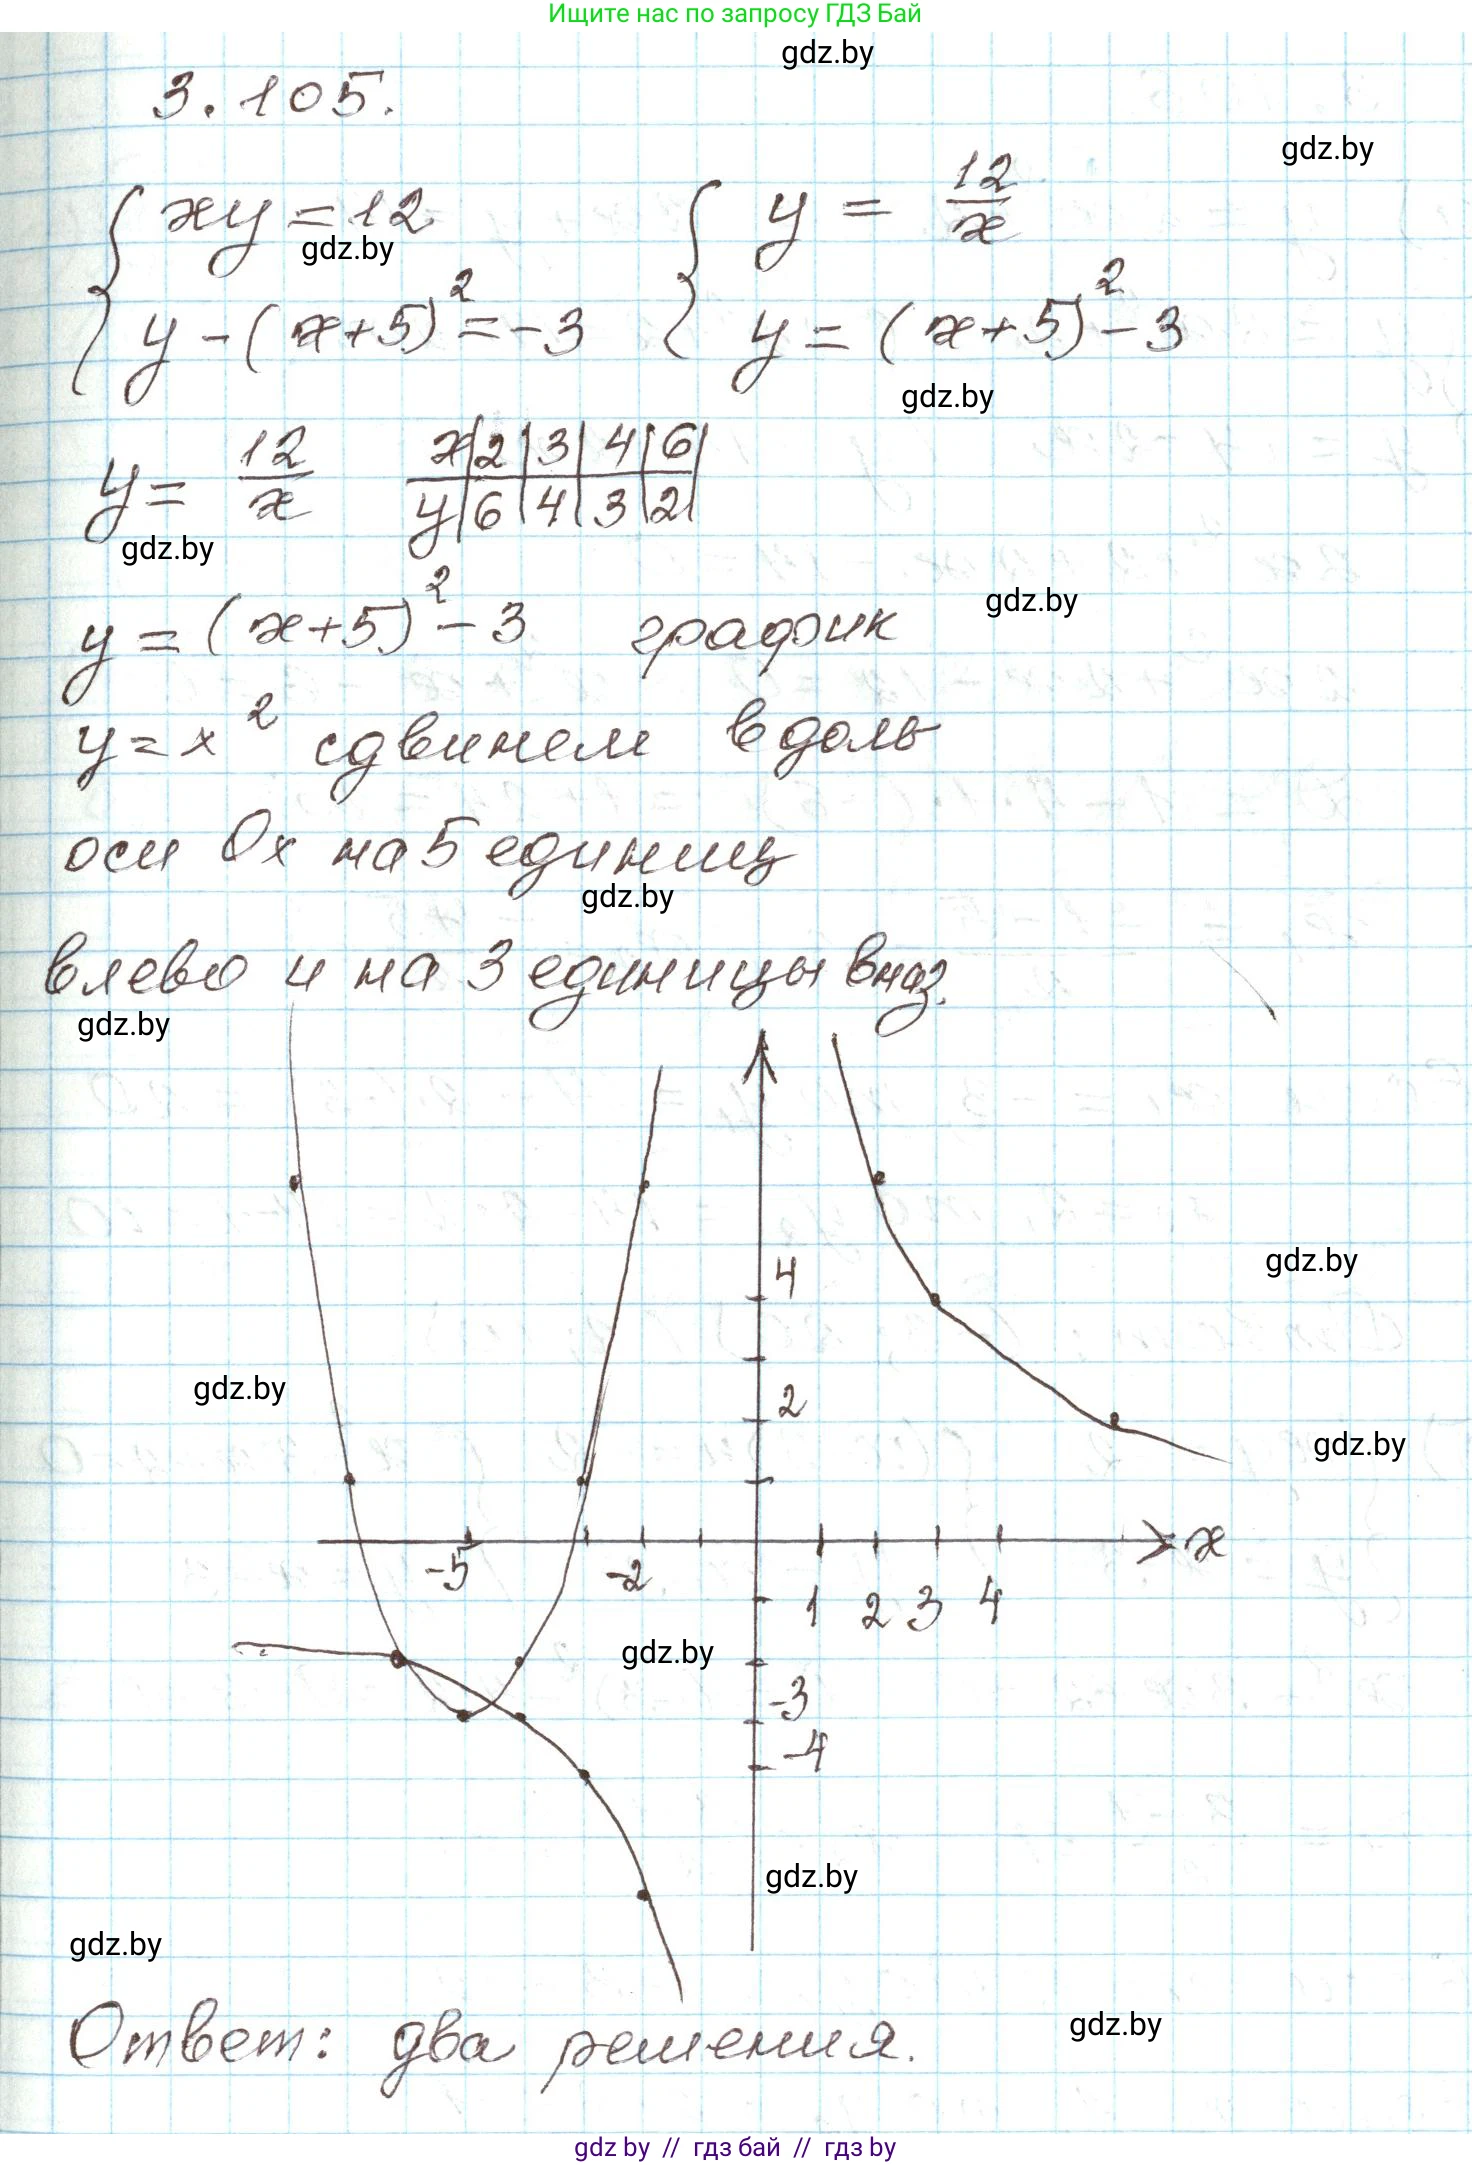 Ищите нас по запросу ГДЗ Бай
gdz.by
3.105.
gdz.by
{ xy = 12 { y = 12/x
gdz.by
y - (x+5)² = -3 y = (x+5)² - 3
gdz.by
y = 12/x x | 2 | 3 | 4 | 6 |
y | 6 | 4 | 3 | 2 |
gdz.by
y = (x+5)² - 3 график
gdz.by
y = x² сдвинем вдоль
оси Ox на 5 единиц
gdz.by
влево и на 3 единицы вниз.
gdz.by
4
gdz.by
gdz.by
2
gdz.by
x
-5 -2 1 2 3 4
gdz.by
-3
-4
gdz.by
gdz.by
Ответ: два решения.
gdz.by
gdz by // гдз бай // гдз by